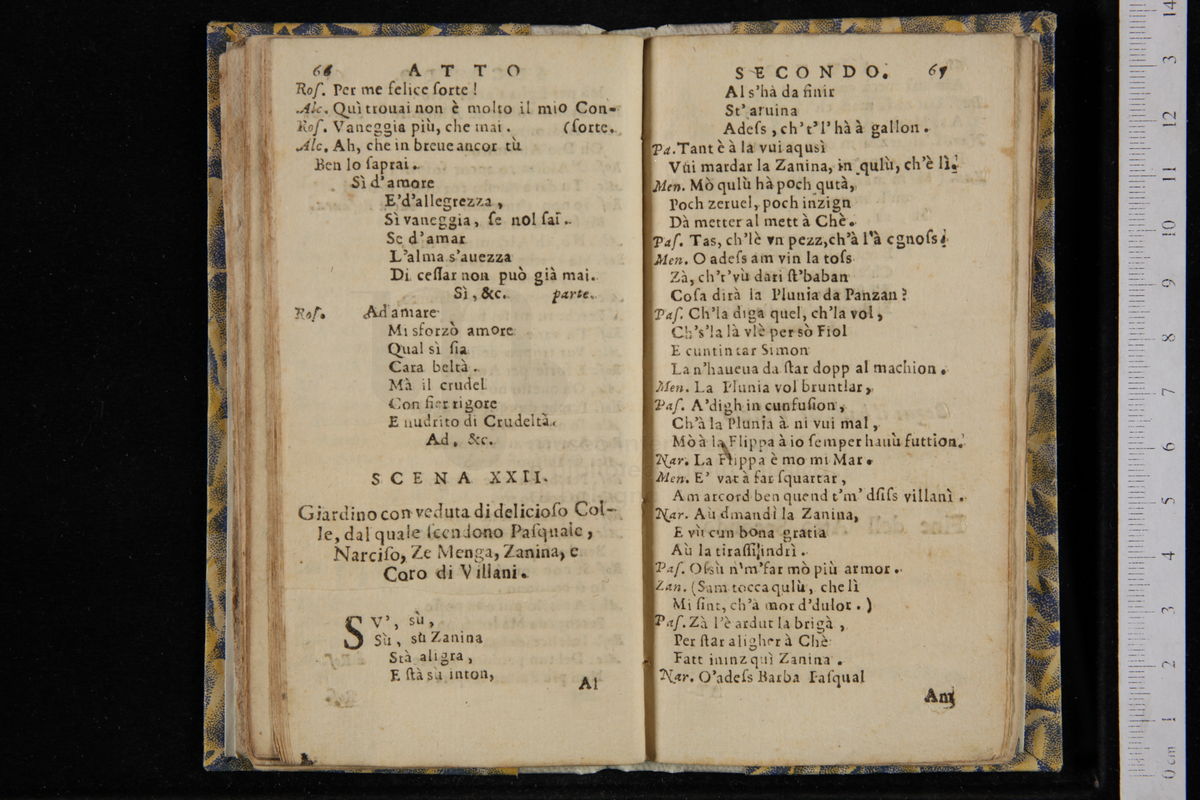 66 ATTO
Ros. Per me felice sorte!
Alc. Quì trouai non è molto il mio Con-
Ros. Vaneggia più, che mai. (sorte.
Alc. Ah, che in breue ancor tù
Ben lo saprai.
Sì d'amore
E'd'allegrezza,
Sì vaneggia, se nol sai.
Se d'amar
L'alma s'auezza
Di cessar non può già mai.
Sì, &c. parte.
Ros. Ad amare
Mi sforzò amore
Qual sì sia
Cara beltà.
Mà il crudel
Con fier rigore
E nudrito di Crudeltà.
Ad. &c.
SCENA XXII.
Giardino con veduta di delicioso Col-
le, dal quale scendono Pasquale,
Narciso, Ze Menga, Zanina, e
Coro di Villani.
SV', sù,
Sù, sù Zanina
Stà aligra,
E stà su inton,
Al
SECONDO. 67
Al s'hà da finir
St' aruina
Adess, ch't'l' hà à gallon.
Pa. Tant è à la vui aqusì
Vúi mardar la Zanina, in qulù, ch'è lì.
Men. Mò qulù hà poch qutà,
Poch zeruel, poch inzign
Dà metter al mett à Chè.
Pas. Tas, ch'lè vn pezz, ch'à l'à cgnoss.
Men. O adess am vin la toss
Zà, ch't'vù dari st'baban
Cosa dirà la Plunia da Panzan?
Pas. Ch'la diga quel, ch'la vol,
Ch's'la là vlè per sò Fiol
E cuntintar Simon
La n'haueua da star dopp al machion.
Men. La Plunia vol bruntlar,
Pas. A'digh in cunfusion,
Ch'à la Plunia à ni vui mal,
Mò à la Flippa à io semper hauù futtion.
Nar. La Flippa è mo mi Mar.
Men. E' vat à far squartar,
Am arcord ben quend t'm' dsiss villanì.
Nar. Aù dmandì la Zanina,
E vù cun bona gratia
Aù la tirassi indrì.
Pas. Ossù n'm'far mò più armor.
Zan. (Sam tocca qulù, che lì
Mi sint, ch'à mor d'dulor.)
Pas. Zà l'è ardut la brigà,
Per star aligher à Chè
Fatt ininz quì Zanina.
Nar. O'adess Barba Pasqual
Am